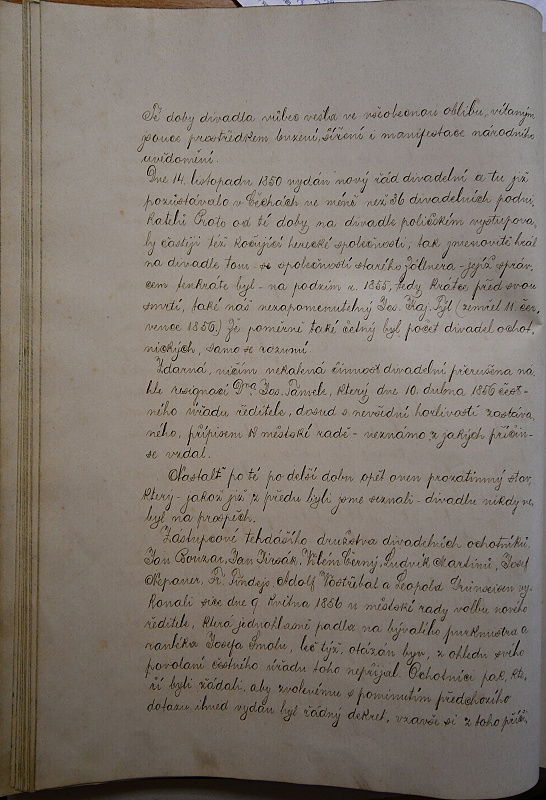 Té doby divadla vůbec vešla ve všeobecnou oblibu, vítaným
jsouce prostředkem buzení, šíření i manifestace národního
uvědomění.
Dne 14. listopadu 1850 vydán nový řád divadelní a tu již
pozůstávalo v Čechách ne méně než 36 divadelních podni-
katelů. Proto od té doby, na divadle poličském vystupova-
ly častěji též kočující herecké společnosti; tak jmenovitě hrál
na divadle tom se společností starého Zöllnera - jejíž správ-
cem tenkráte byl - na podzim r. 1855, tedy krátce před svou
smrtí, také náš nezapomenutelný Jos. Kaj. Tyl (zemřel 11. čer-
vence 1856.) Že poměrně také četný byl počet divadel ochot-
nických, samo se rozumí.
Zdárná, ničím nekalená činnost divadelní přerušena ná-
hle resignací Dra. Jos. Pámele, který dne 10. dubna 1856 čest-
ného úřadu ředitele, dosud s nevšední horlivostí zastáva-
ného, přípisem k městské radě - neznámo z jakých příčin-
se vzdal.
Nastalť po té po delší dobu opět onen prozatímný stav,
který - jakož již z předu byli jsme seznali - divadlu nikdy ne-
byl na prospěch.
Zástupcové tehdášího družstva divadelních ochotníků,
Jan Bouzar, Jan Jirsák, Vilém Černý, Ludvík Martinů, Josef
Nepauer, Fr. Adolf Vostřebal a Leopold Grünseisen vy-
konali sice dne 9. května 1856 u městské rady volbu nového
ředitele, která jednohlasně padla na bývalého purkmistra a
ranlékа Josefa Smolu, leč týž, otázán byv, z ohledu svého
povolání čestného úřadu toho nepřijal. Ochotníci pak, kte-
ří byli žádali, aby zvolenému s pominutím předchozího
dotazu ihned vydán byl řádný dekret, vzavše si z toho příči-